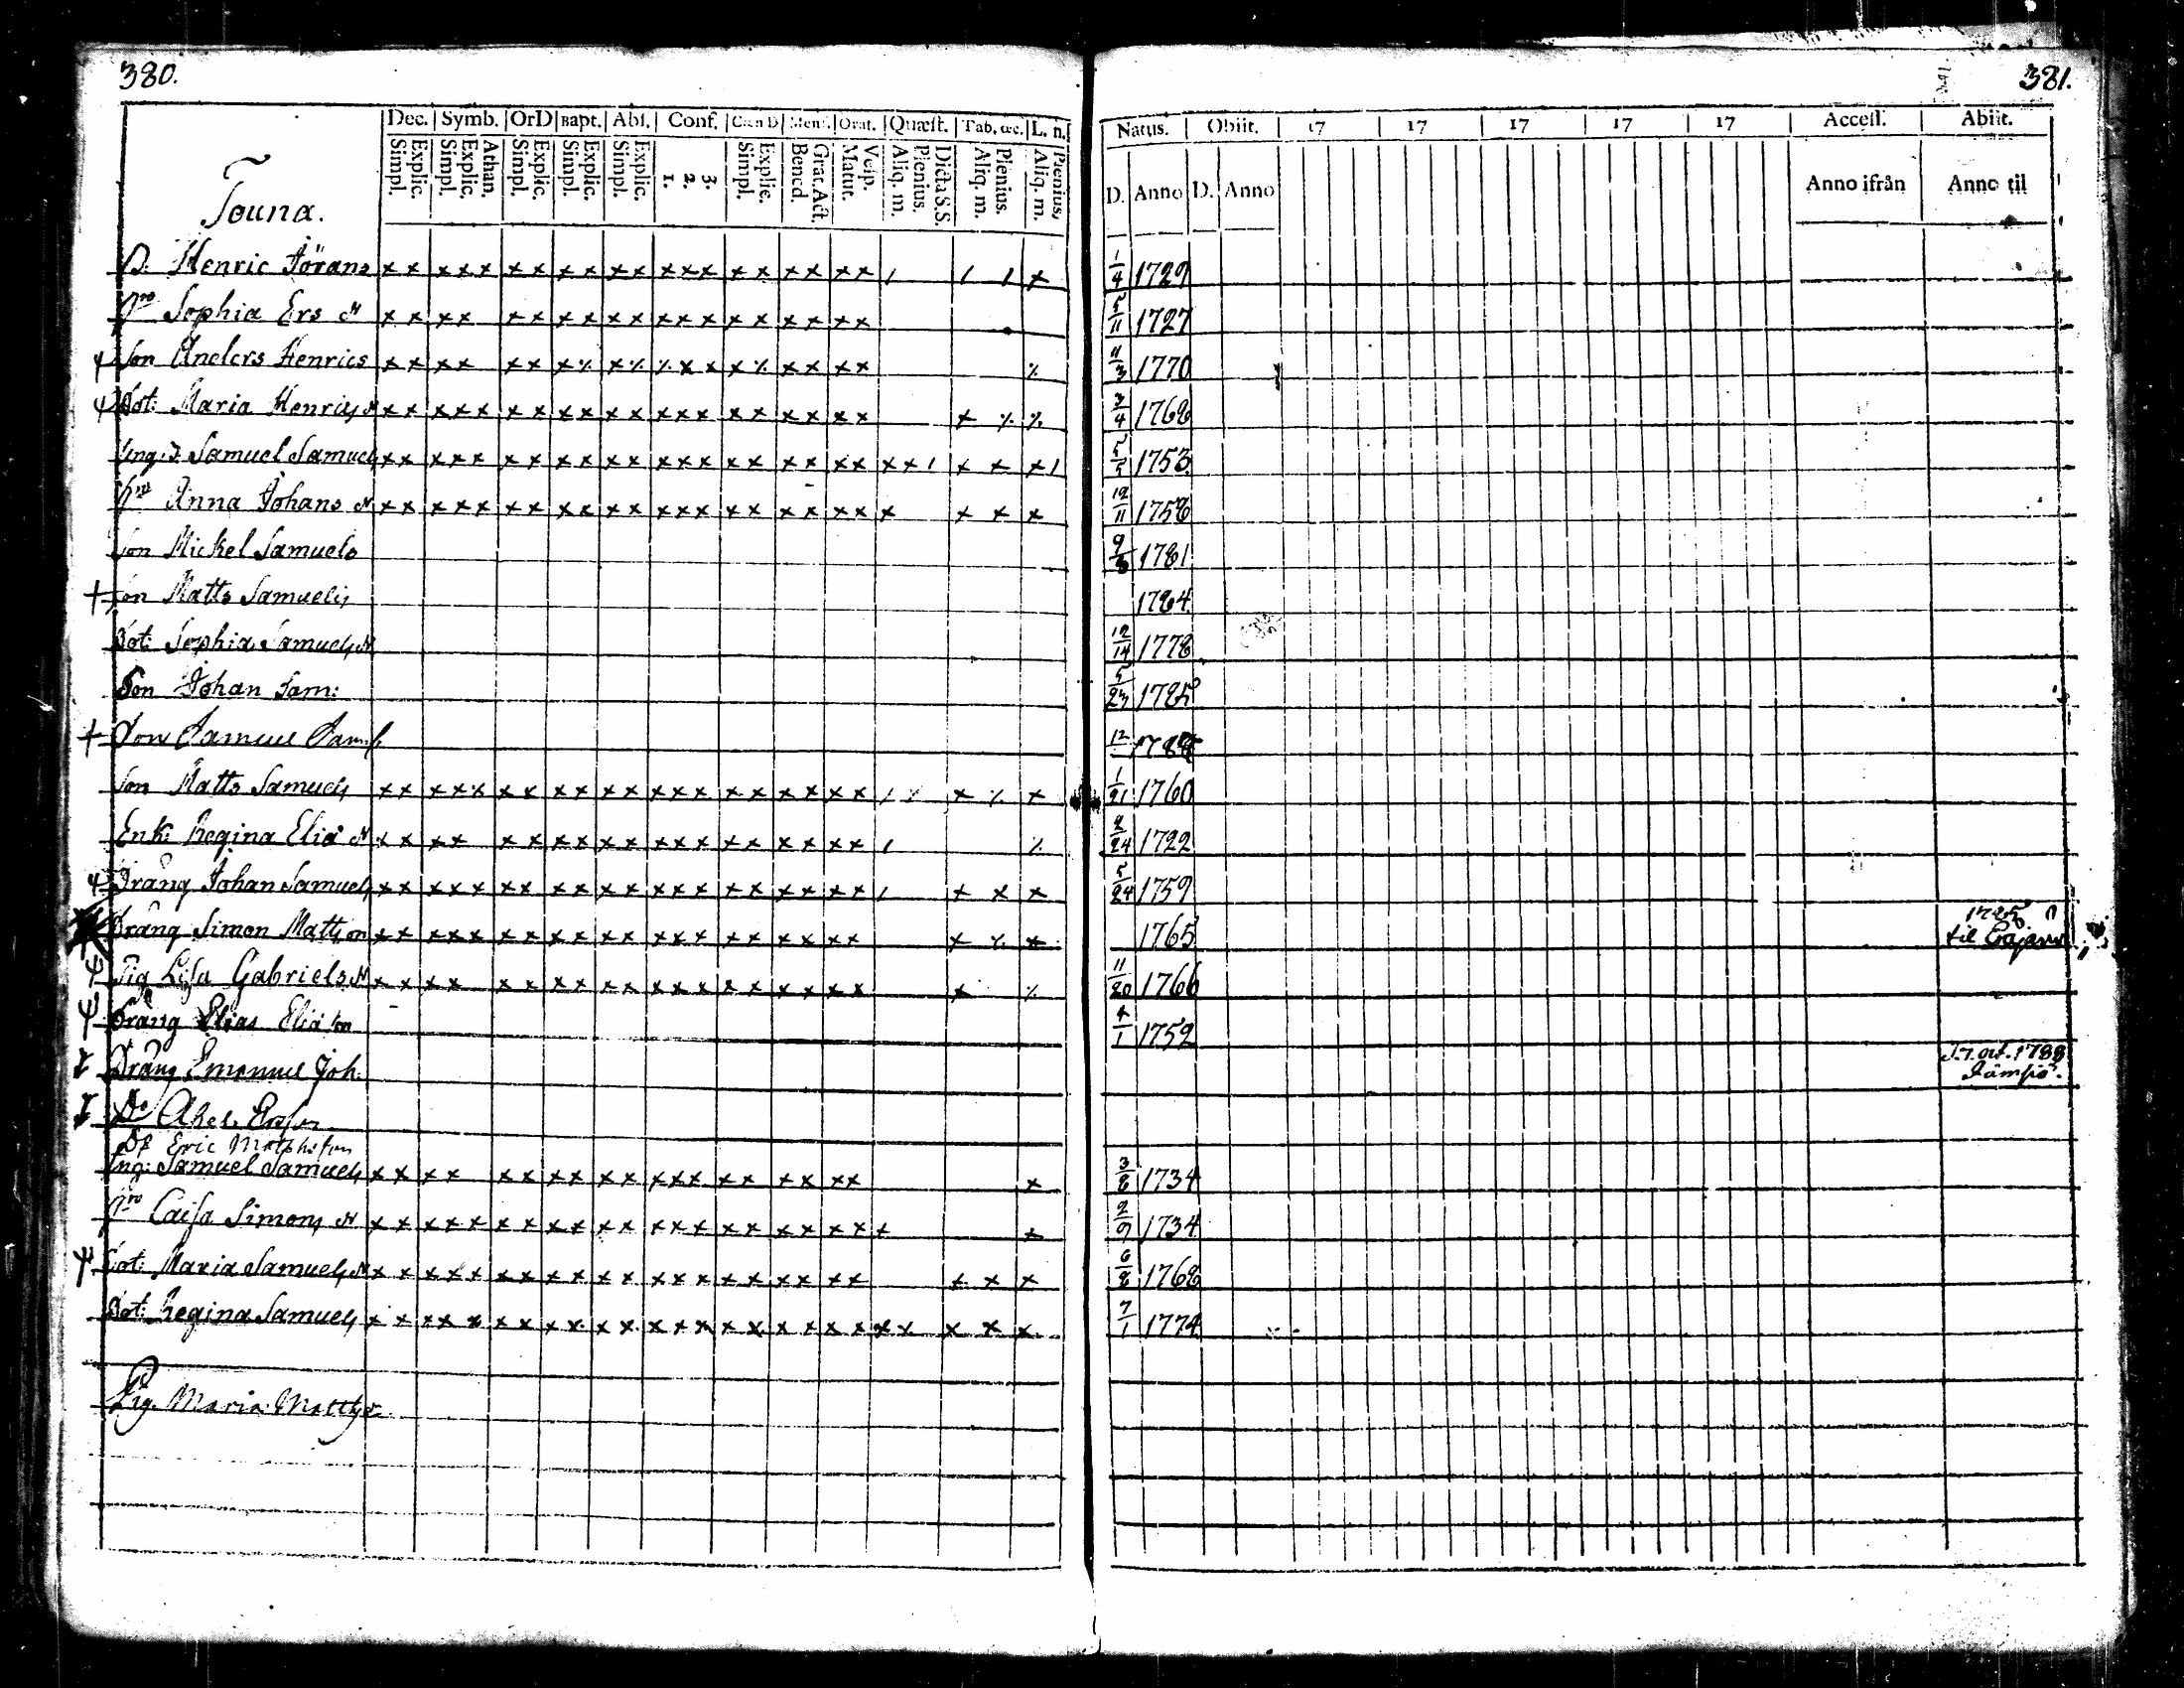 380.
381.
Dec. Symb. OrD Bapt. Abſ. Conf. Cœn D Menſ. Orat. Quæſt. Tab, &c. L. n.
Natus. Obiit. 17 17 17 17 17 Acceſſ. Abiit.
Simpl. Explic. Simpl. Explic. Athan. Simpl. Explic. Simpl. Explic. Simpl. Explic. 1. 2. 3. Simpl. Explic. Bened. Grat. Act. Matut. Veſp. Aliq. m. Plenius. Dicta S.S. Aliq. m. Plenius. Aliq. m. Plenius,
D. Anno D. Anno Anno ifrån Anno til
Touna.
B. Henric Jörans 1/4 1729
Sophia Ers N 5/11 1727
Son Anders Henrics 1770
Dot: Maria Henrics N 3/4 1768
Samuel Samuels 5/5 1753
Anna Johans N 12/11 1758
Son Mickel Samuels 1781
Son Matts Samuels 1784
Dot: Sophia Samuels N 12/14 1778
Son Johan Sam: 5/23 1785
Son Samuel Sam 12 1788
Son Matts Samuels 1/21 1760
Enk: Regina Eliæ N 2/24 1722
Dräng Johan Samuels 5/24 1759
Dräng Simon Mattson 1765 1785 til
Pig Lisa Gabriels N 11/20 1766
Dräng Elias Eliæ son 4/1 1752
Dräng Emanuel Joh. oct. 1788
D:o Ersson
D:o Eric
Ing: Samuel Samuels 3/8 1734
Caisa Simons N 2/9 1734
Dot: Maria Samuels N 6/8 1768
Dot: Regina Samuels 7/1 1774
Pig. Maria Matts